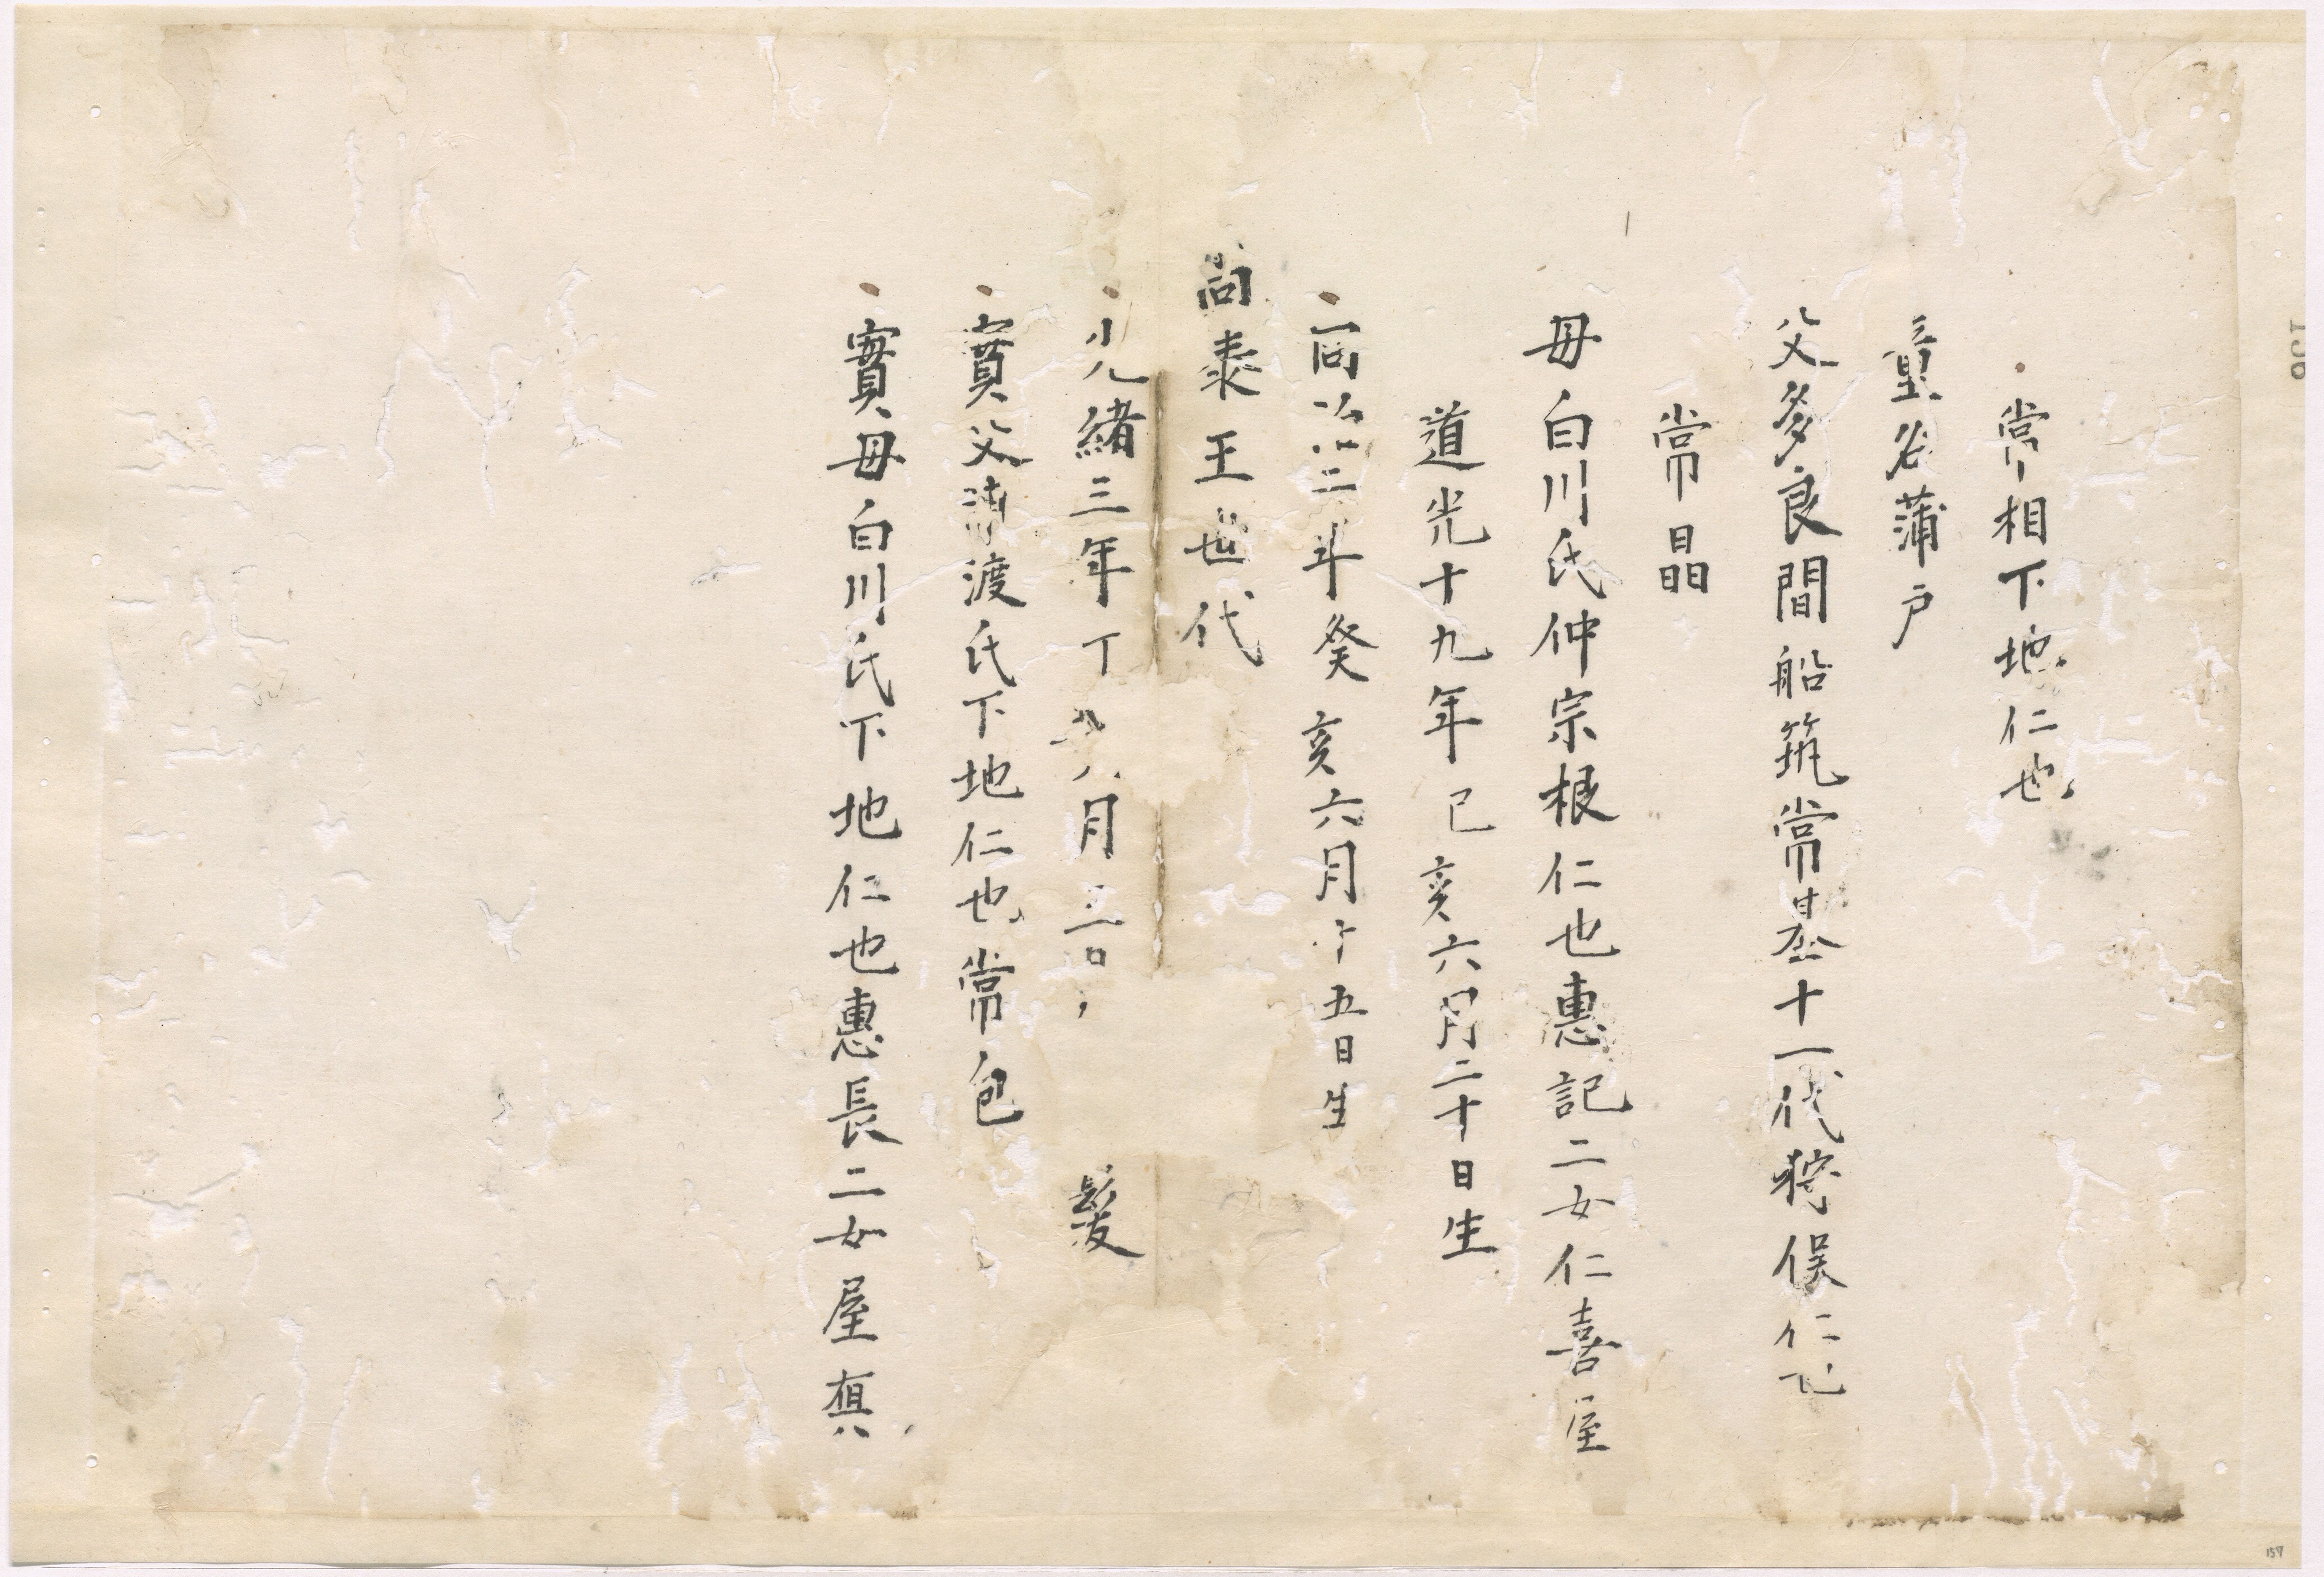 常相下地仁也
童名蒲戸
父多良間船筑常基十一代狩俣仁也
常晶
母白川氏仲宗根仁也惠記二女仁喜屋
道光十九年己亥六月二十日生
同治二年癸亥六月十五日生
尚泰王世代
光緒三年丁 八月三日 髮
實父 渡氏下地仁也常包
實母白川氏下地仁也惠長二女屋真
157